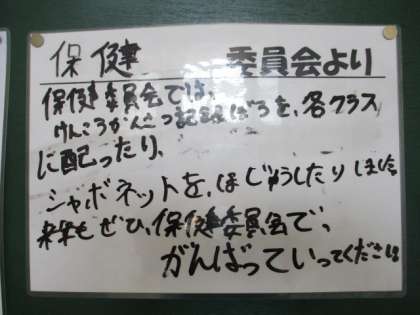 保健 委員会より
保健委員会では、
けんこうかんさつ記録ぼろを、各クラス
に配ったり、
シャボネットを、ほじゅうしたりしました
来年もぜひ、保健委員会で、
がんばっていってください